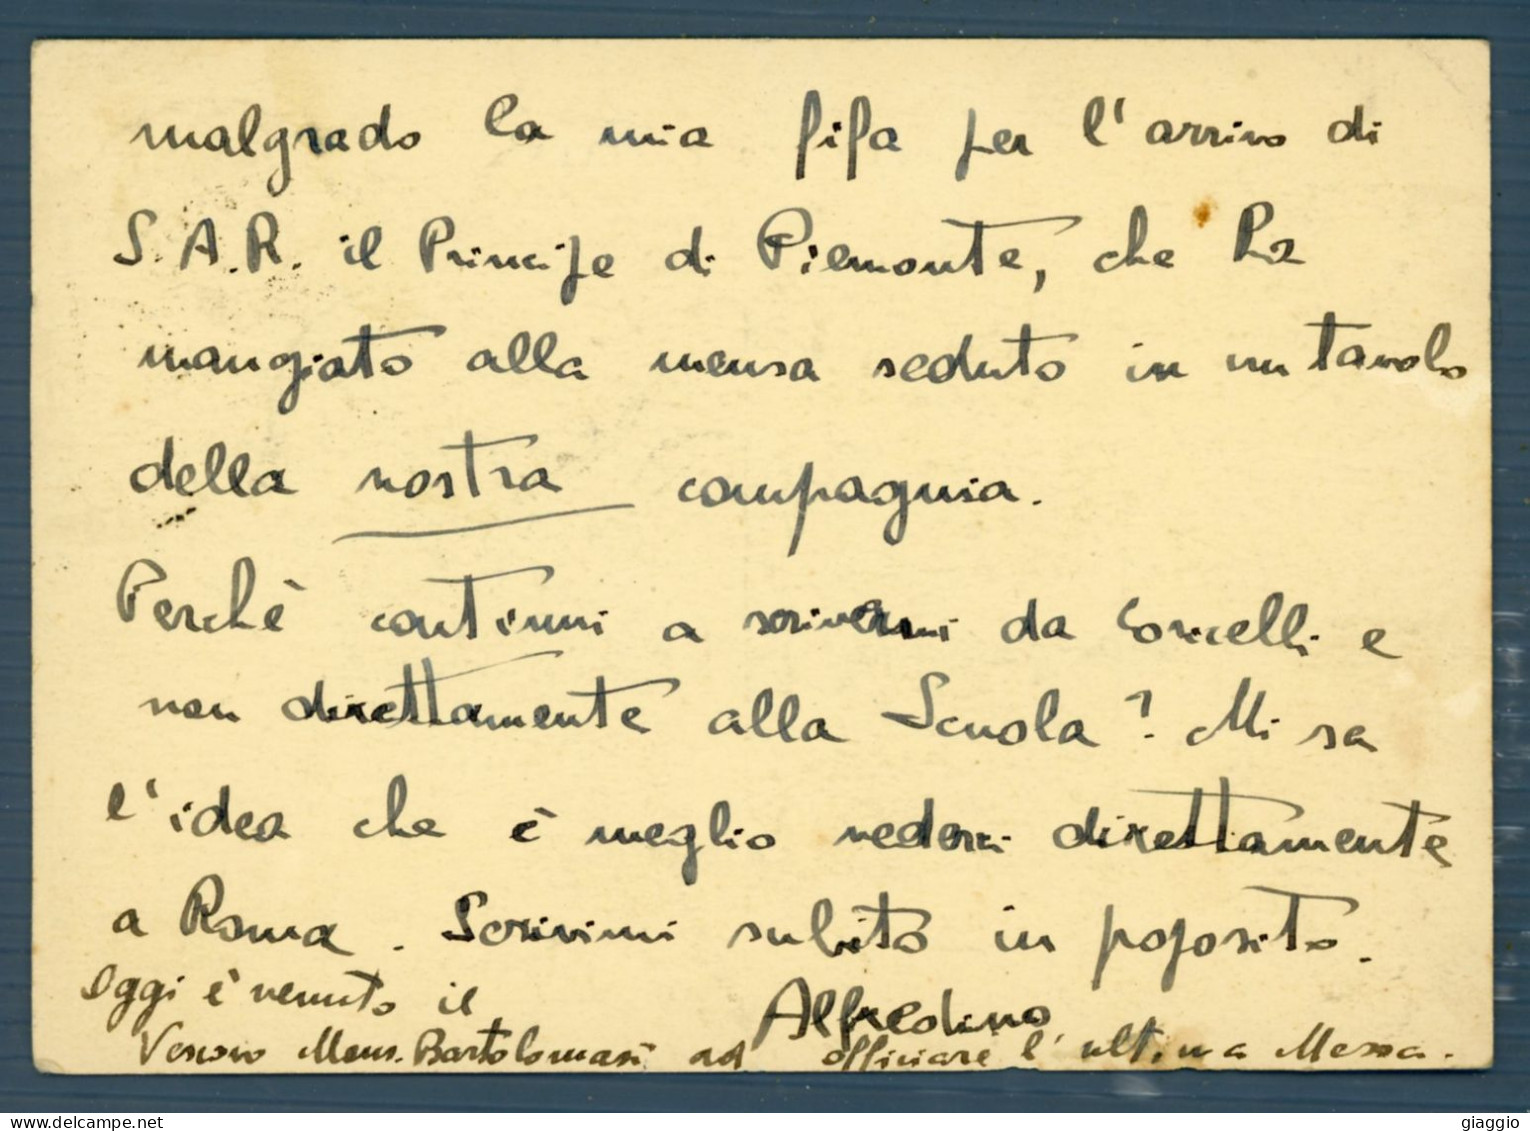 malgrado la mia fifa per l'arrivo di
S.A.R. il Principe di Piemonte, che ha
mangiato alla mensa seduto in un tavolo
della nostra compagnia.
Perchè continui a scrivermi da Soricelli e
non direttamente alla Scuola? Mi sa
l'idea che è meglio vederci direttamente
a Roma. Scrivimi subito in poposito.
Alfredino
Oggi è venuto il
Vescovo Mons. Bartolomasi ad officiare l'ultima Messa.
giaggio